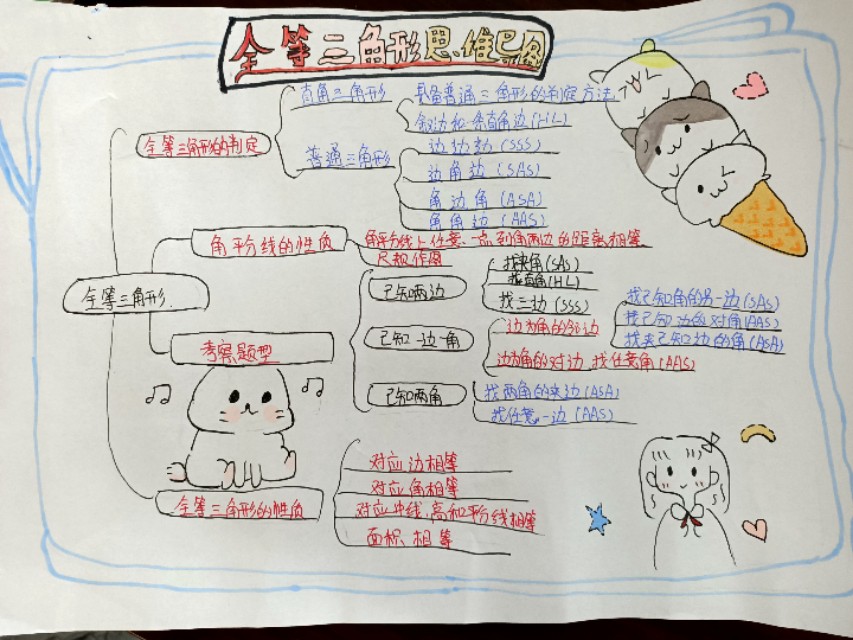 全等三角形思维导图
直角三角形
具备普通三角形的判定方法
斜边和一条直角边(HL)
全等三角形的判定
普通三角形
边边边(SSS)
边角边(SAS)
角边角(ASA)
角角边(AAS)
角平分线的性质
角平分线上任意一点到角两边的距离相等
尺规作图
全等三角形
考察题型
已知两边
找夹角(SAS)
找直角(HL)
找三边(SSS)
已知一边一角
边为角的邻边
找已知角的另一边(SAS)
找已知边的对角(AAS)
找夹已知边的角(ASA)
边为角的对边,找任意角(AAS)
已知两角
找两角的夹边(ASA)
找任意一边(AAS)
全等三角形的性质
对应边相等
对应角相等
对应中线、高和平分线相等
面积相等